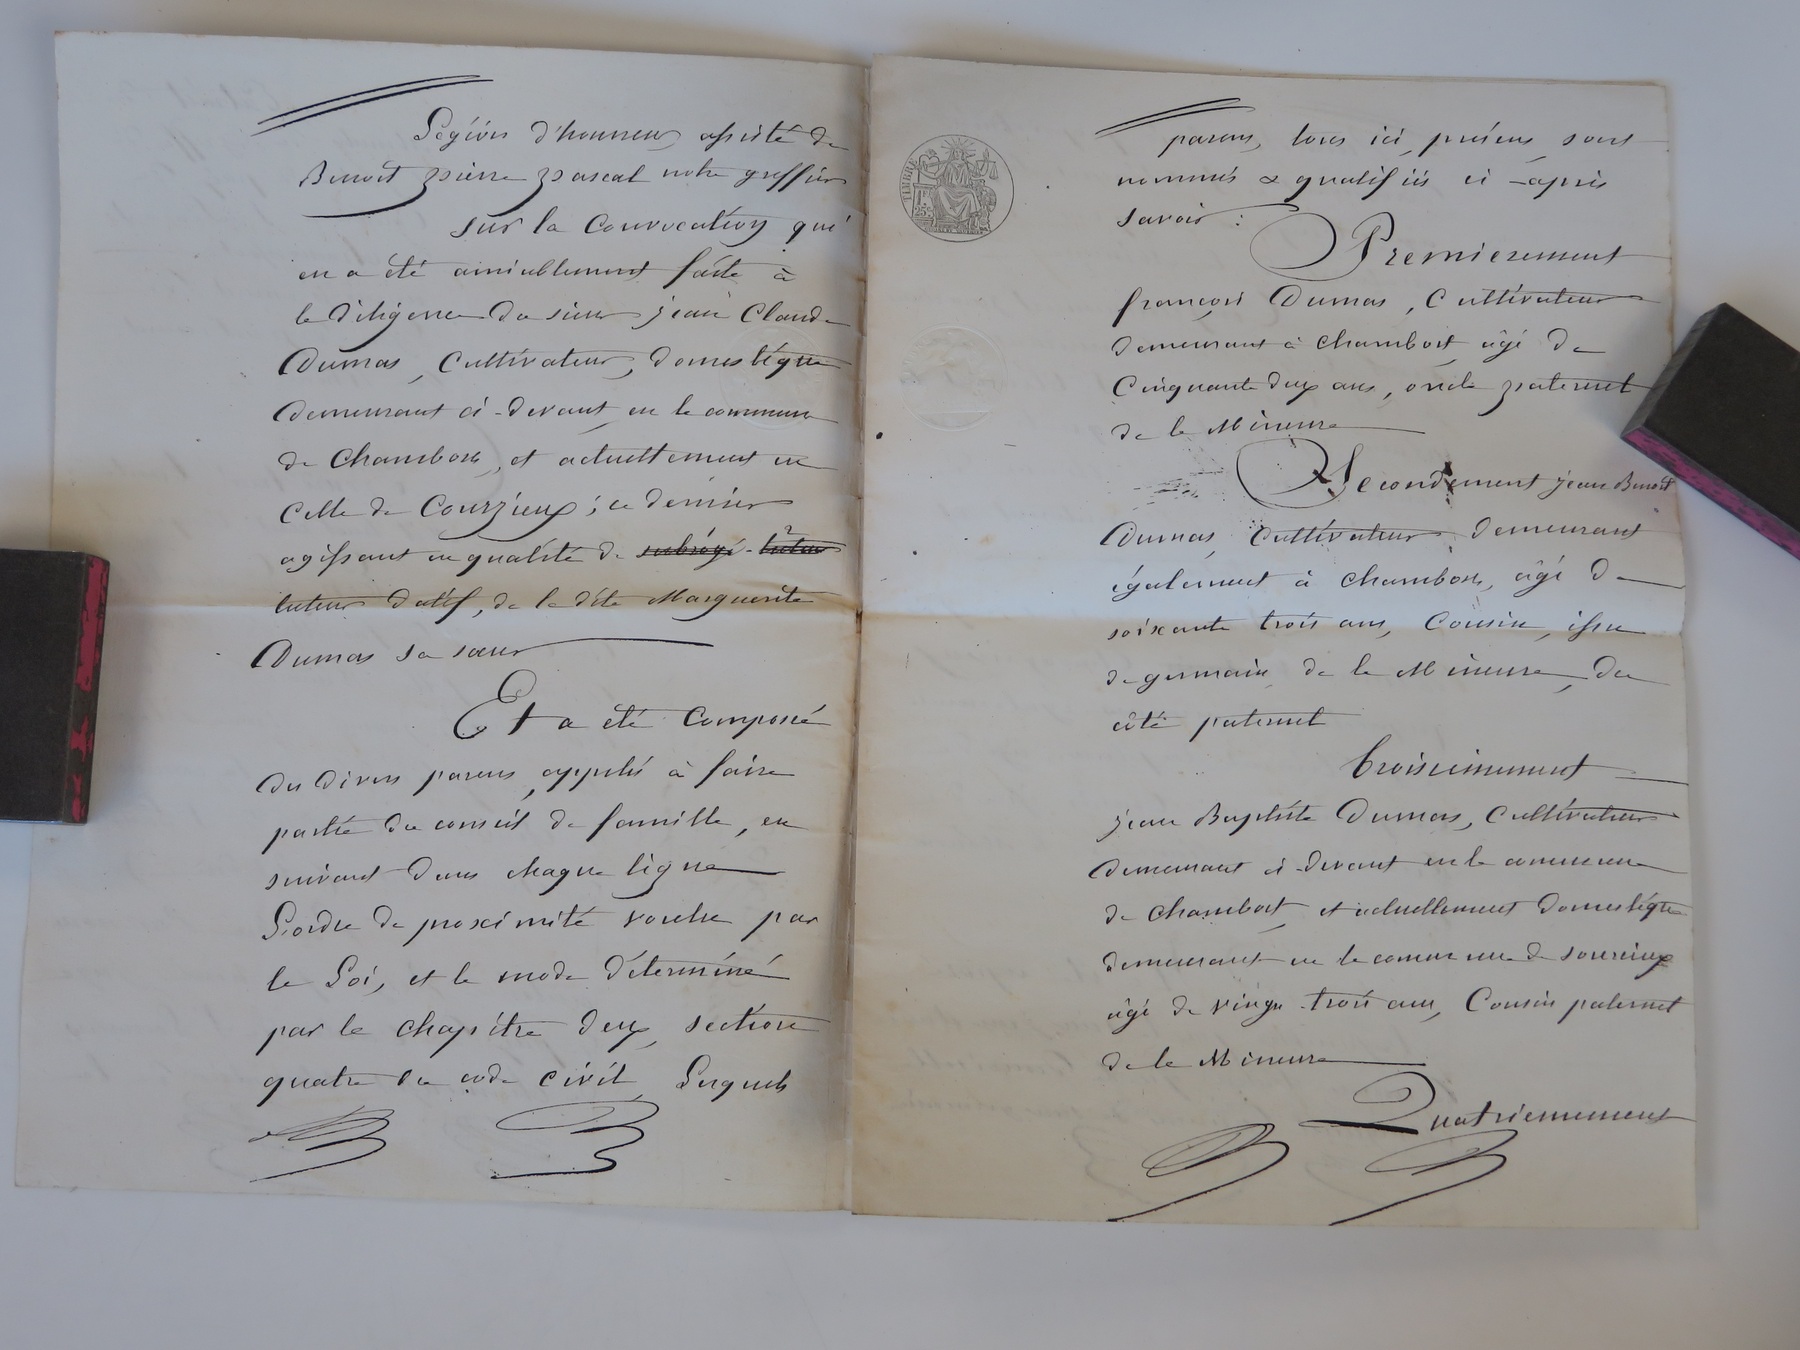 Légion d'honneur, assisté de
Benoit pierre pascal notre greffier
sur la Convocation qui
en a été amiablement faite à
la diligence du sieur jean Claude
Dumas, Cultivateur, domestique
demeurant ci-devant en la commune
de Chambost, et actuellement en
celle de Courzieux; ce dernier
agissant en qualité de subrogé-tuteur
tuteur datif, de la dite Marguerite
Dumas sa sœur
Et a été Composé
des divers parens, appelés à faire
partie du conseil de famille, en
suivant dans chaque ligne
L'ordre de proximité voulue par
la Loi, et le mode déterminé
par le chapitre deux, section
quatre du code civil, Lesquels
TIMBRE
25c
parens, tous ici présens, sont
nommés & qualifiés ci-après
savoir :
Premierement
françois Dumas, Cultivateur
demeurant à Chambost, âgé de
Cinquante deux ans, oncle paternel
de la Mineure
Secondement jean Benoit
Dumas, Cultivateur demeurant
également à Chambost, âgé de
soixante trois ans, Cousin, issu
de germain de la Mineure, du
côté paternel
troisiemement
jean Baptiste Dumas, Cultivateur
demeurant ci-devant en la commune
de Chambost, et actuellement domestique
demeurant en la commune de sourcieux
âgé de vingt-trois ans, Cousin paternel
de la Mineure
Quatriemement